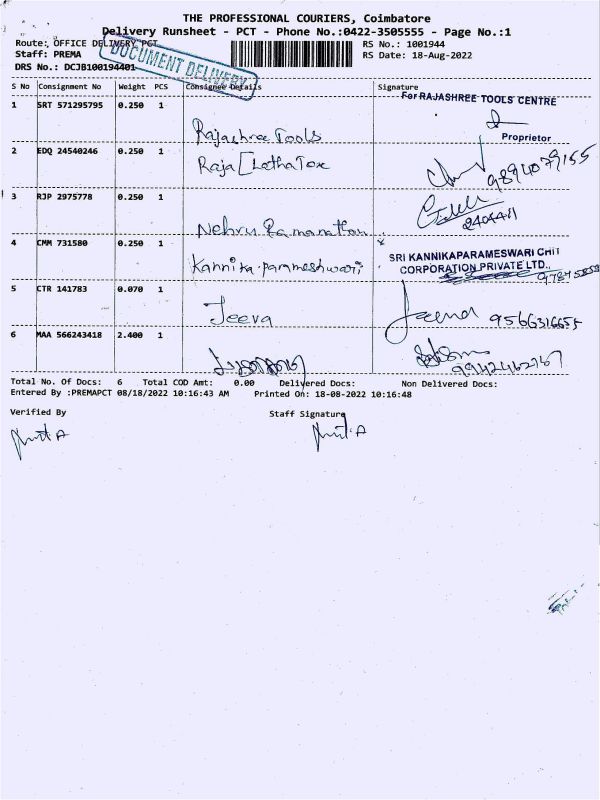 THE PROFESSIONAL COURIERS, Coimbatore
Delivery Runsheet - PCT - Phone No.:0422-3505555 - Page No.:1
Route: OFFICE DELIVERY PCT
RS No.: 1001944
Staff: PREMA
RS Date: 18-Aug-2022
DRS No.: DCJB100194401
DOCUMENT DELIVERY
S No Consignment No Weight PCS Consignee Details Signature
For RAJASHREE TOOLS CENTRE
1 SRT 571295795 0.250 1
Rajashree Tools
Proprietor
2 EDQ 24540246 0.250 1
Raja
9894079155
3 RJP 2975778 0.250 1
2404411
Nehru Ramanathan
4 CMM 731580 0.250 1
SRI KANNIKAPARAMESWARI CHIT
Kannika parameshwari
CORPORATION PRIVATE LTD.,
5 CTR 141783 0.070 1
Jeeva
9566316655
6 MAA 566243418 2.400 1
Total No. Of Docs: 6 Total COD Amt: 0.00 Delivered Docs: Non Delivered Docs:
Entered By :PREMAPCT 08/18/2022 10:16:43 AM Printed On: 18-08-2022 10:16:48
Verified By
Staff Signature